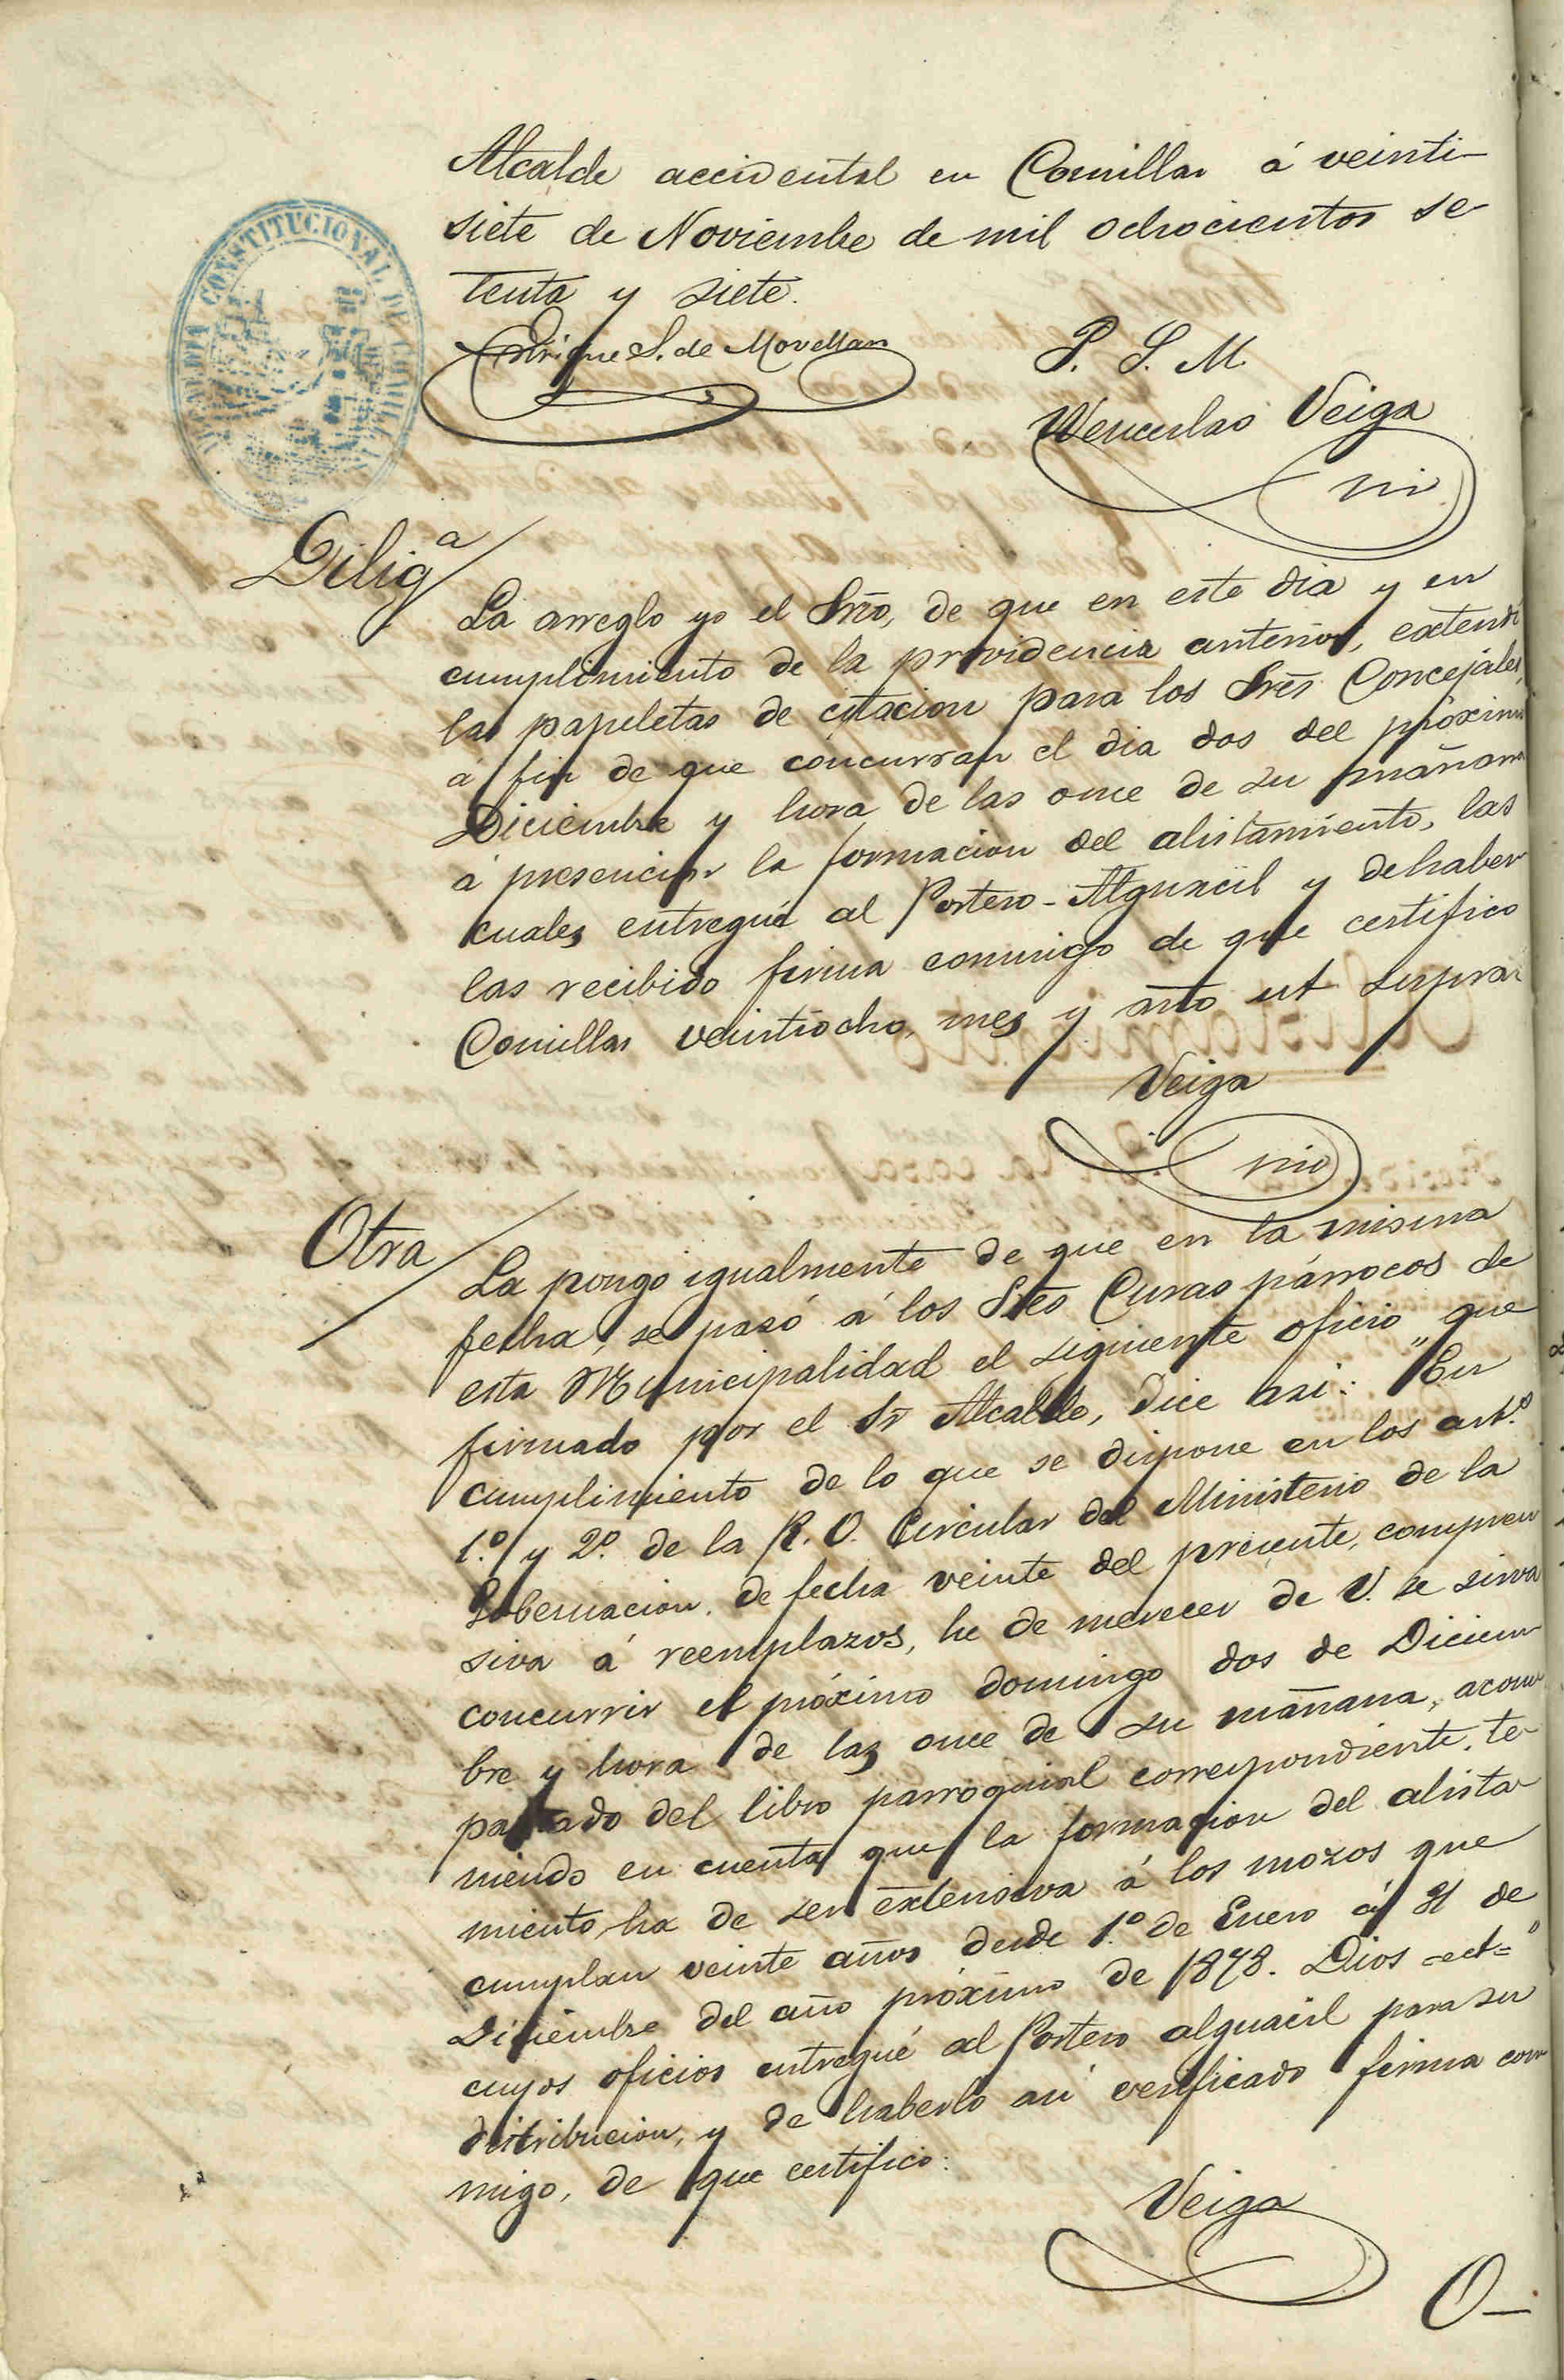 Alcalde accidental en Comillas á veinti-
siete de Noviembre de mil ochocientos se-
tenta y siete.
Enrique S. de Movellan
P. S. M.
Wenceslao Veiga
ALCALDIA CONSTITUCIONAL DE COMILLAS
Dilig.ª
La arreglo yo el Srio, de que en este dia y en
cumplimiento de la providencia anterior, extendí
las papeletas de citacion para los Sres Concejales,
á fin de que concurran el dia dos del próximo
Diciembre y hora de las once de su mañana
á presenciar la formacion del alistamiento, las
cuales entregué al Portero-Alguacil y de haber
las recibido firma conmigo de que certifico
Comillas veintiocho, mes y año ut supra.
Veiga
Otra
La pongo igualmente de que en la misma
fecha, se pasó á los Sres Curas párrocos de
esta Municipalidad el siguiente oficio que
firmado por el Sr Alcalde, dice asi: "En
cumplimiento de lo que se dispone en los art.º
1.º y 2.º de la R. O. Circular del Ministerio de la
Gobernacion. de fecha veinte del presente, compren
siva á reemplazos, he de merecer de V. se sirva
concurrir el próximo domingo dos de Diciem-
bre y hora de las once de su mañana, acom
pañado del libro parroquial correspondiente, te-
niendo en cuenta que la formacion del alista-
miento, ha de ser extensiva á los mozos que
cumplan veinte años desde 1.º de Enero á 31 de
Diciembre del año próximo de 1878. Dios =ect=º
cuyos oficios entregué al Portero alguacil para su
distribucion, y de haberlo asi verificado firma con
migo, de que certifico:
Veiga
O-